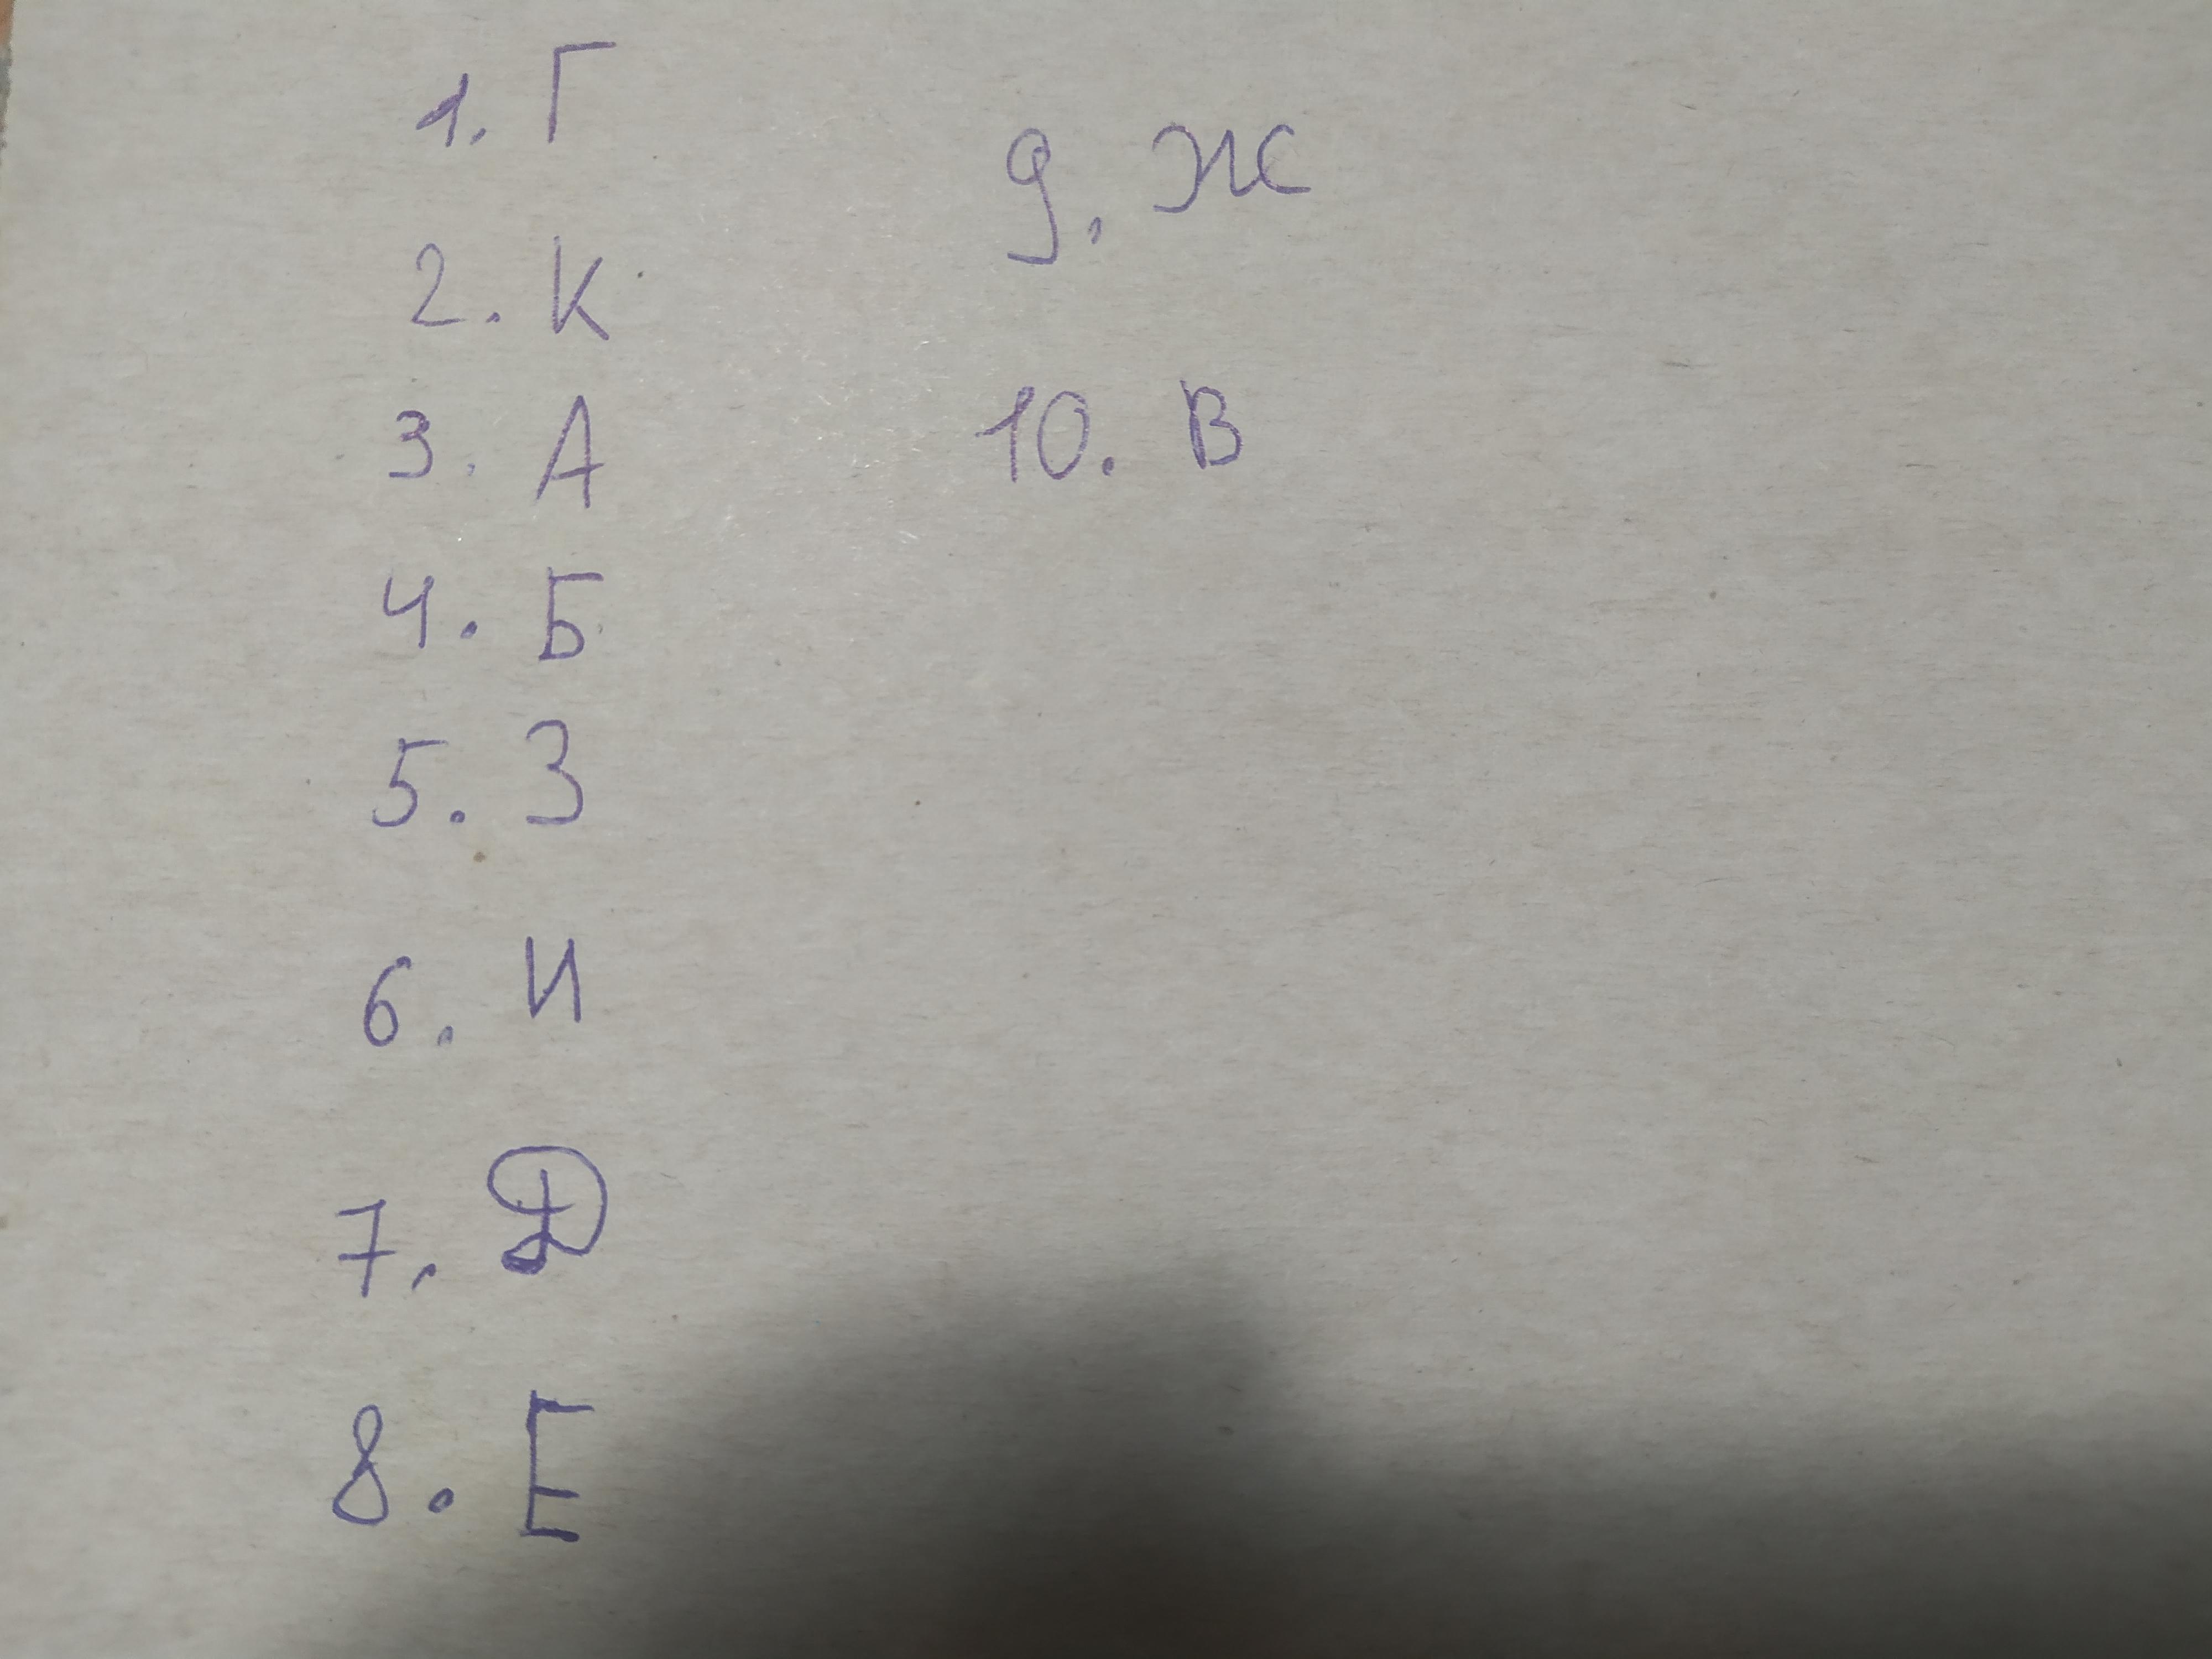 1. Г
2. К
3. А
4. Б
5. З
6. И
7. Д
8. Е
9. Ж
10. В